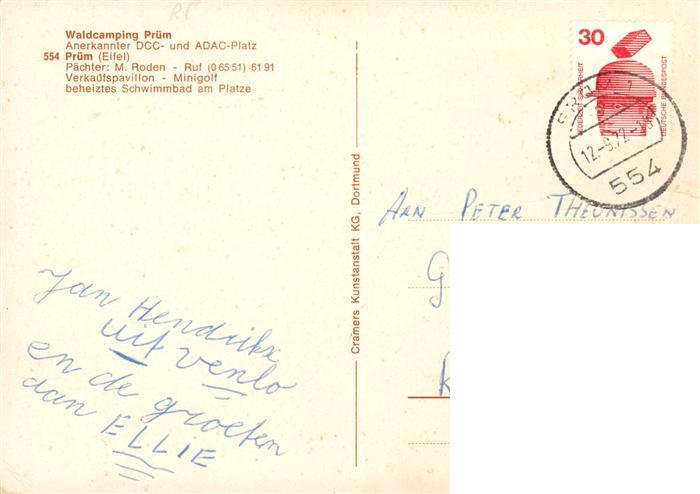 RP
Waldcamping Prüm
Anerkannter DCC- und ADAC-Platz
554 Prüm (Eifel)
Pächter: M. Roden - Ruf (0 65 51) 61 91
Verkaufspavillon - Minigolf
beheiztes Schwimmbad am Platze
30
JEDERZEIT SICHERHEIT
DEUTSCHE BUNDESPOST
12.-9.72
554
Cramers Kunstanstalt KG, Dortmund
AAN PETER THEUNISSEN
G
K
Jan Hendrikx
uit venlo
en de groeten
van ELLIE